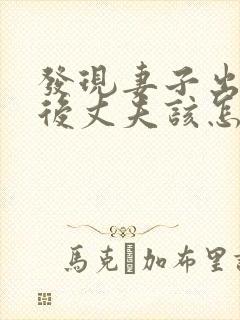 發現妻子出
後丈夫該怎
馬克 加布里